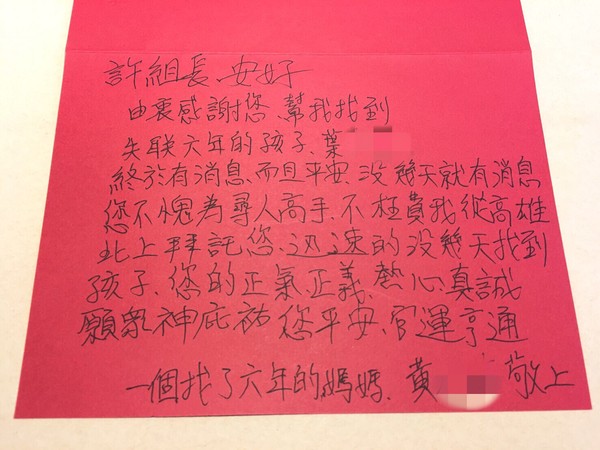 許組長、安好
由衷感謝您、幫我找到
失联六年的孩子、葉
終於有消息、而且平安、没幾天就有消息
您不愧為尋人高手、不枉費我從高雄
北上拜託您、迅速的没幾天找到
孩子、您的正氣正義、熱心、真誠
願眾神庇祐您平安、官運亨通
一個找了六年的媽媽、黃 敬上